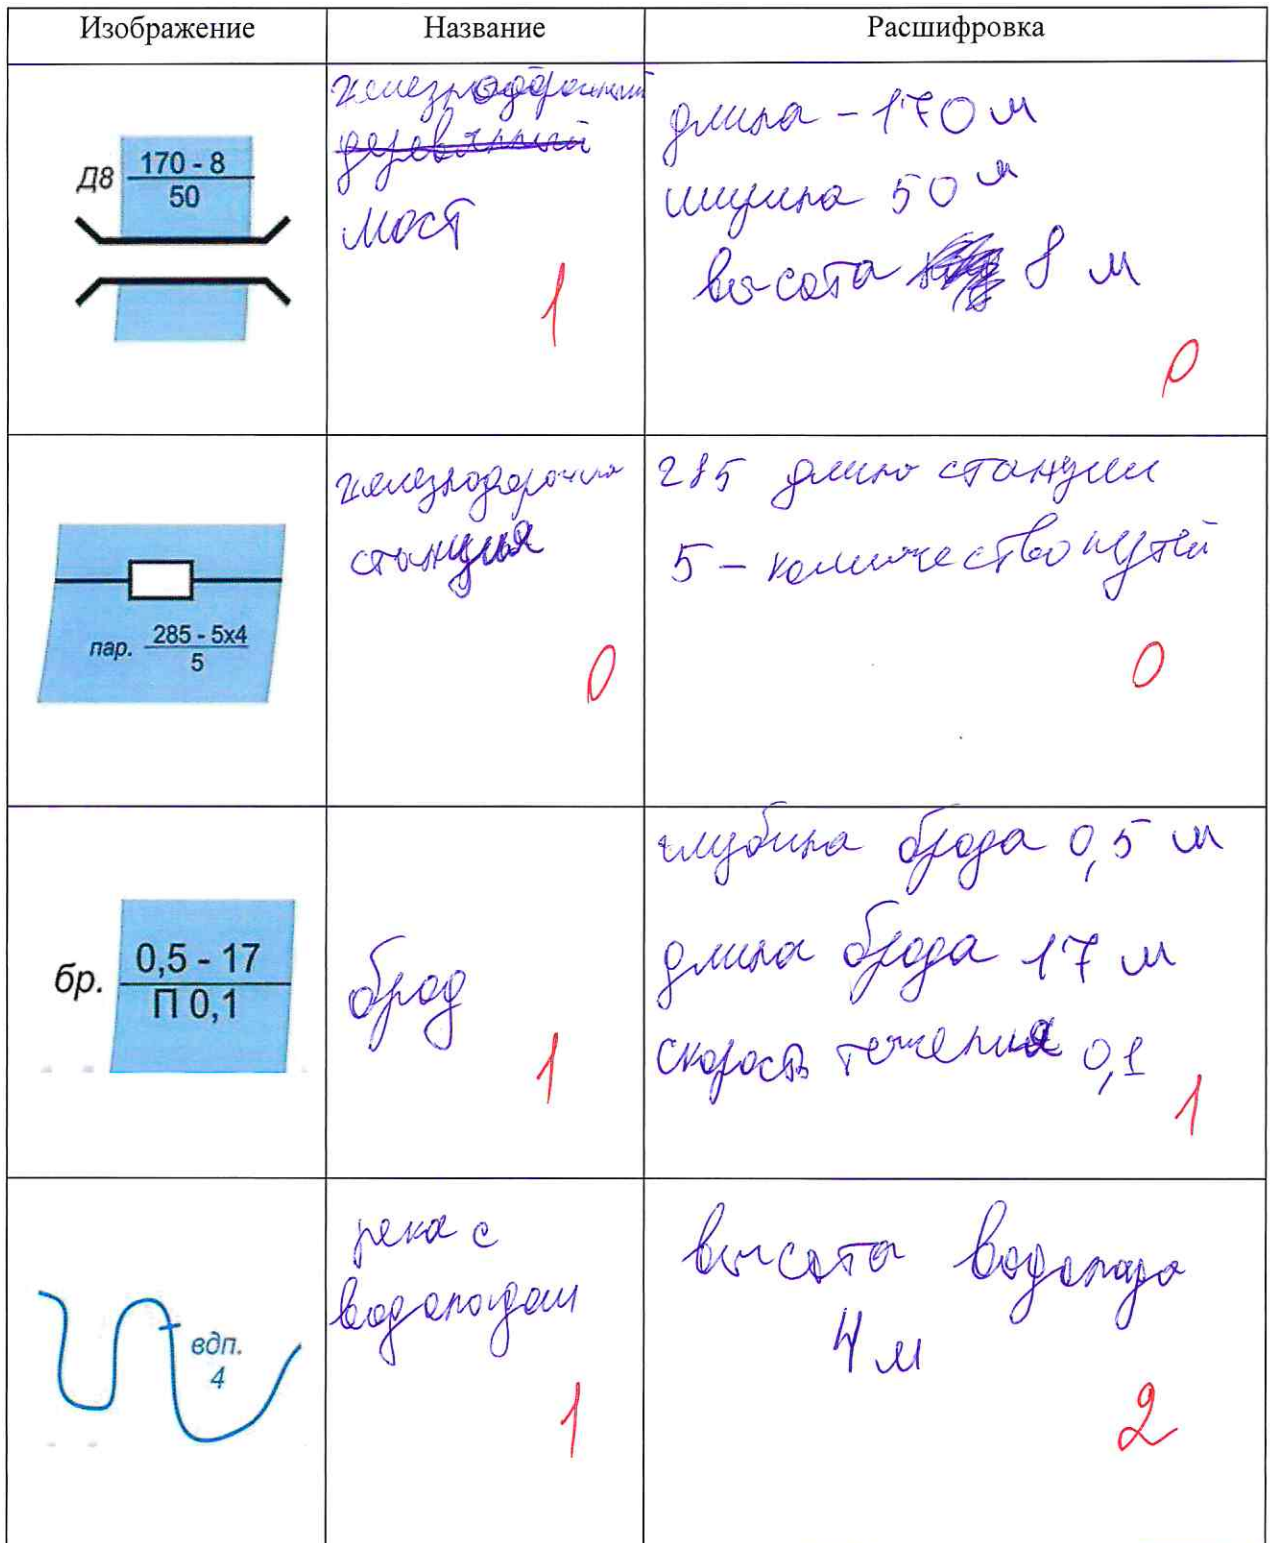 Изображение
Название
Расшифровка
Д8
170 - 8
50
железнодорожный
деревянный
мост
1
длина - 170 м
ширина 50 м
высота 8 м
0
пар.
285 - 5х4
5
железнодорожная
станция
0
285 длина станции
5 - количество путей
0
бр.
0,5 - 17
П 0,1
брод
1
глубина брода 0,5 м
длина брода 17 м
скорость течения 0,1
1
вдп.
4
река с
водопадом
1
высота водопада
4 м
2